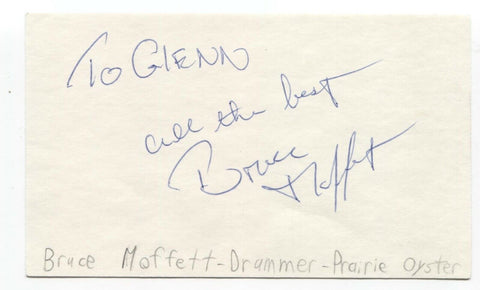 To GLENN
all the best
Bruce Moffet
Bruce Moffett-Drammer-Prairie Oyster